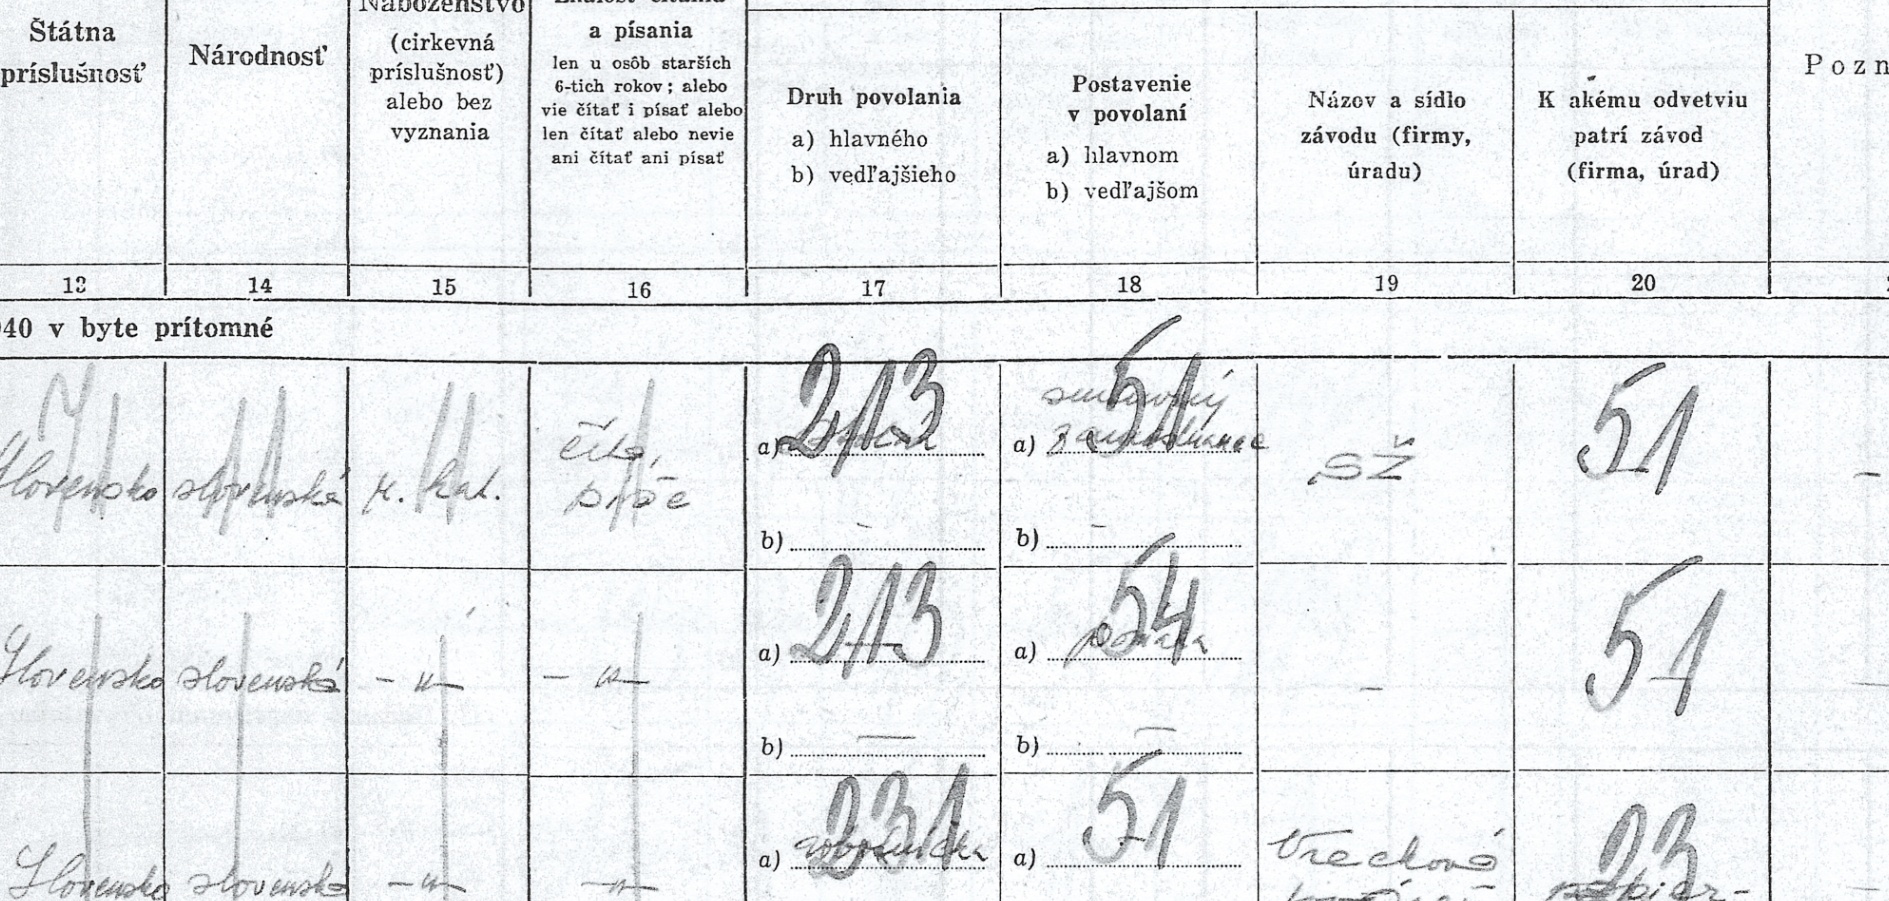 Štátna
príslušnosť
Národnosť
Náboženstvo
(cirkevná
príslušnosť)
alebo bez
vyznania
a písania
len u osôb starších
6-tich rokov; alebo
vie čítať i písať alebo
len čítať alebo nevie
ani čítať ani písať
Druh povolania
a) hlavného
b) vedľajšieho
Postavenie
v povolaní
a) hlavnom
b) vedľajšom
Názov a sídlo
závodu (firmy,
úradu)
K akému odvetviu
patrí závod
(firma, úrad)
Pozn
13 14 15 16 17 18 19 20
940 v byte prítomné
Slovensko slovenská r. kat. číta, píše a) 213 a) 51 zamestnanec SŽ 51 -
b) - b) -
Slovensko slovenská -"- -"- a) 213 a) 54 - 51 -
b) - b) -
Slovensko slovenská -"- -"- a) 231 robotníčka a) 51 vrecková 23 papier-